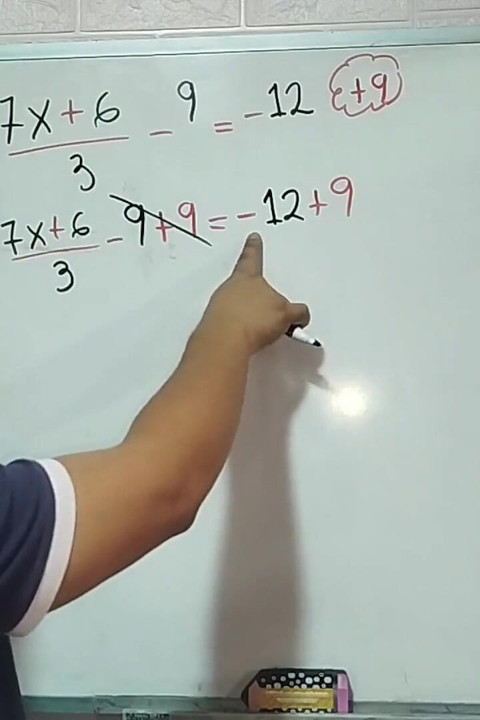 7x+6/3 - 9 = -12 +9
7x+6/3 - 9+9 = -12+9